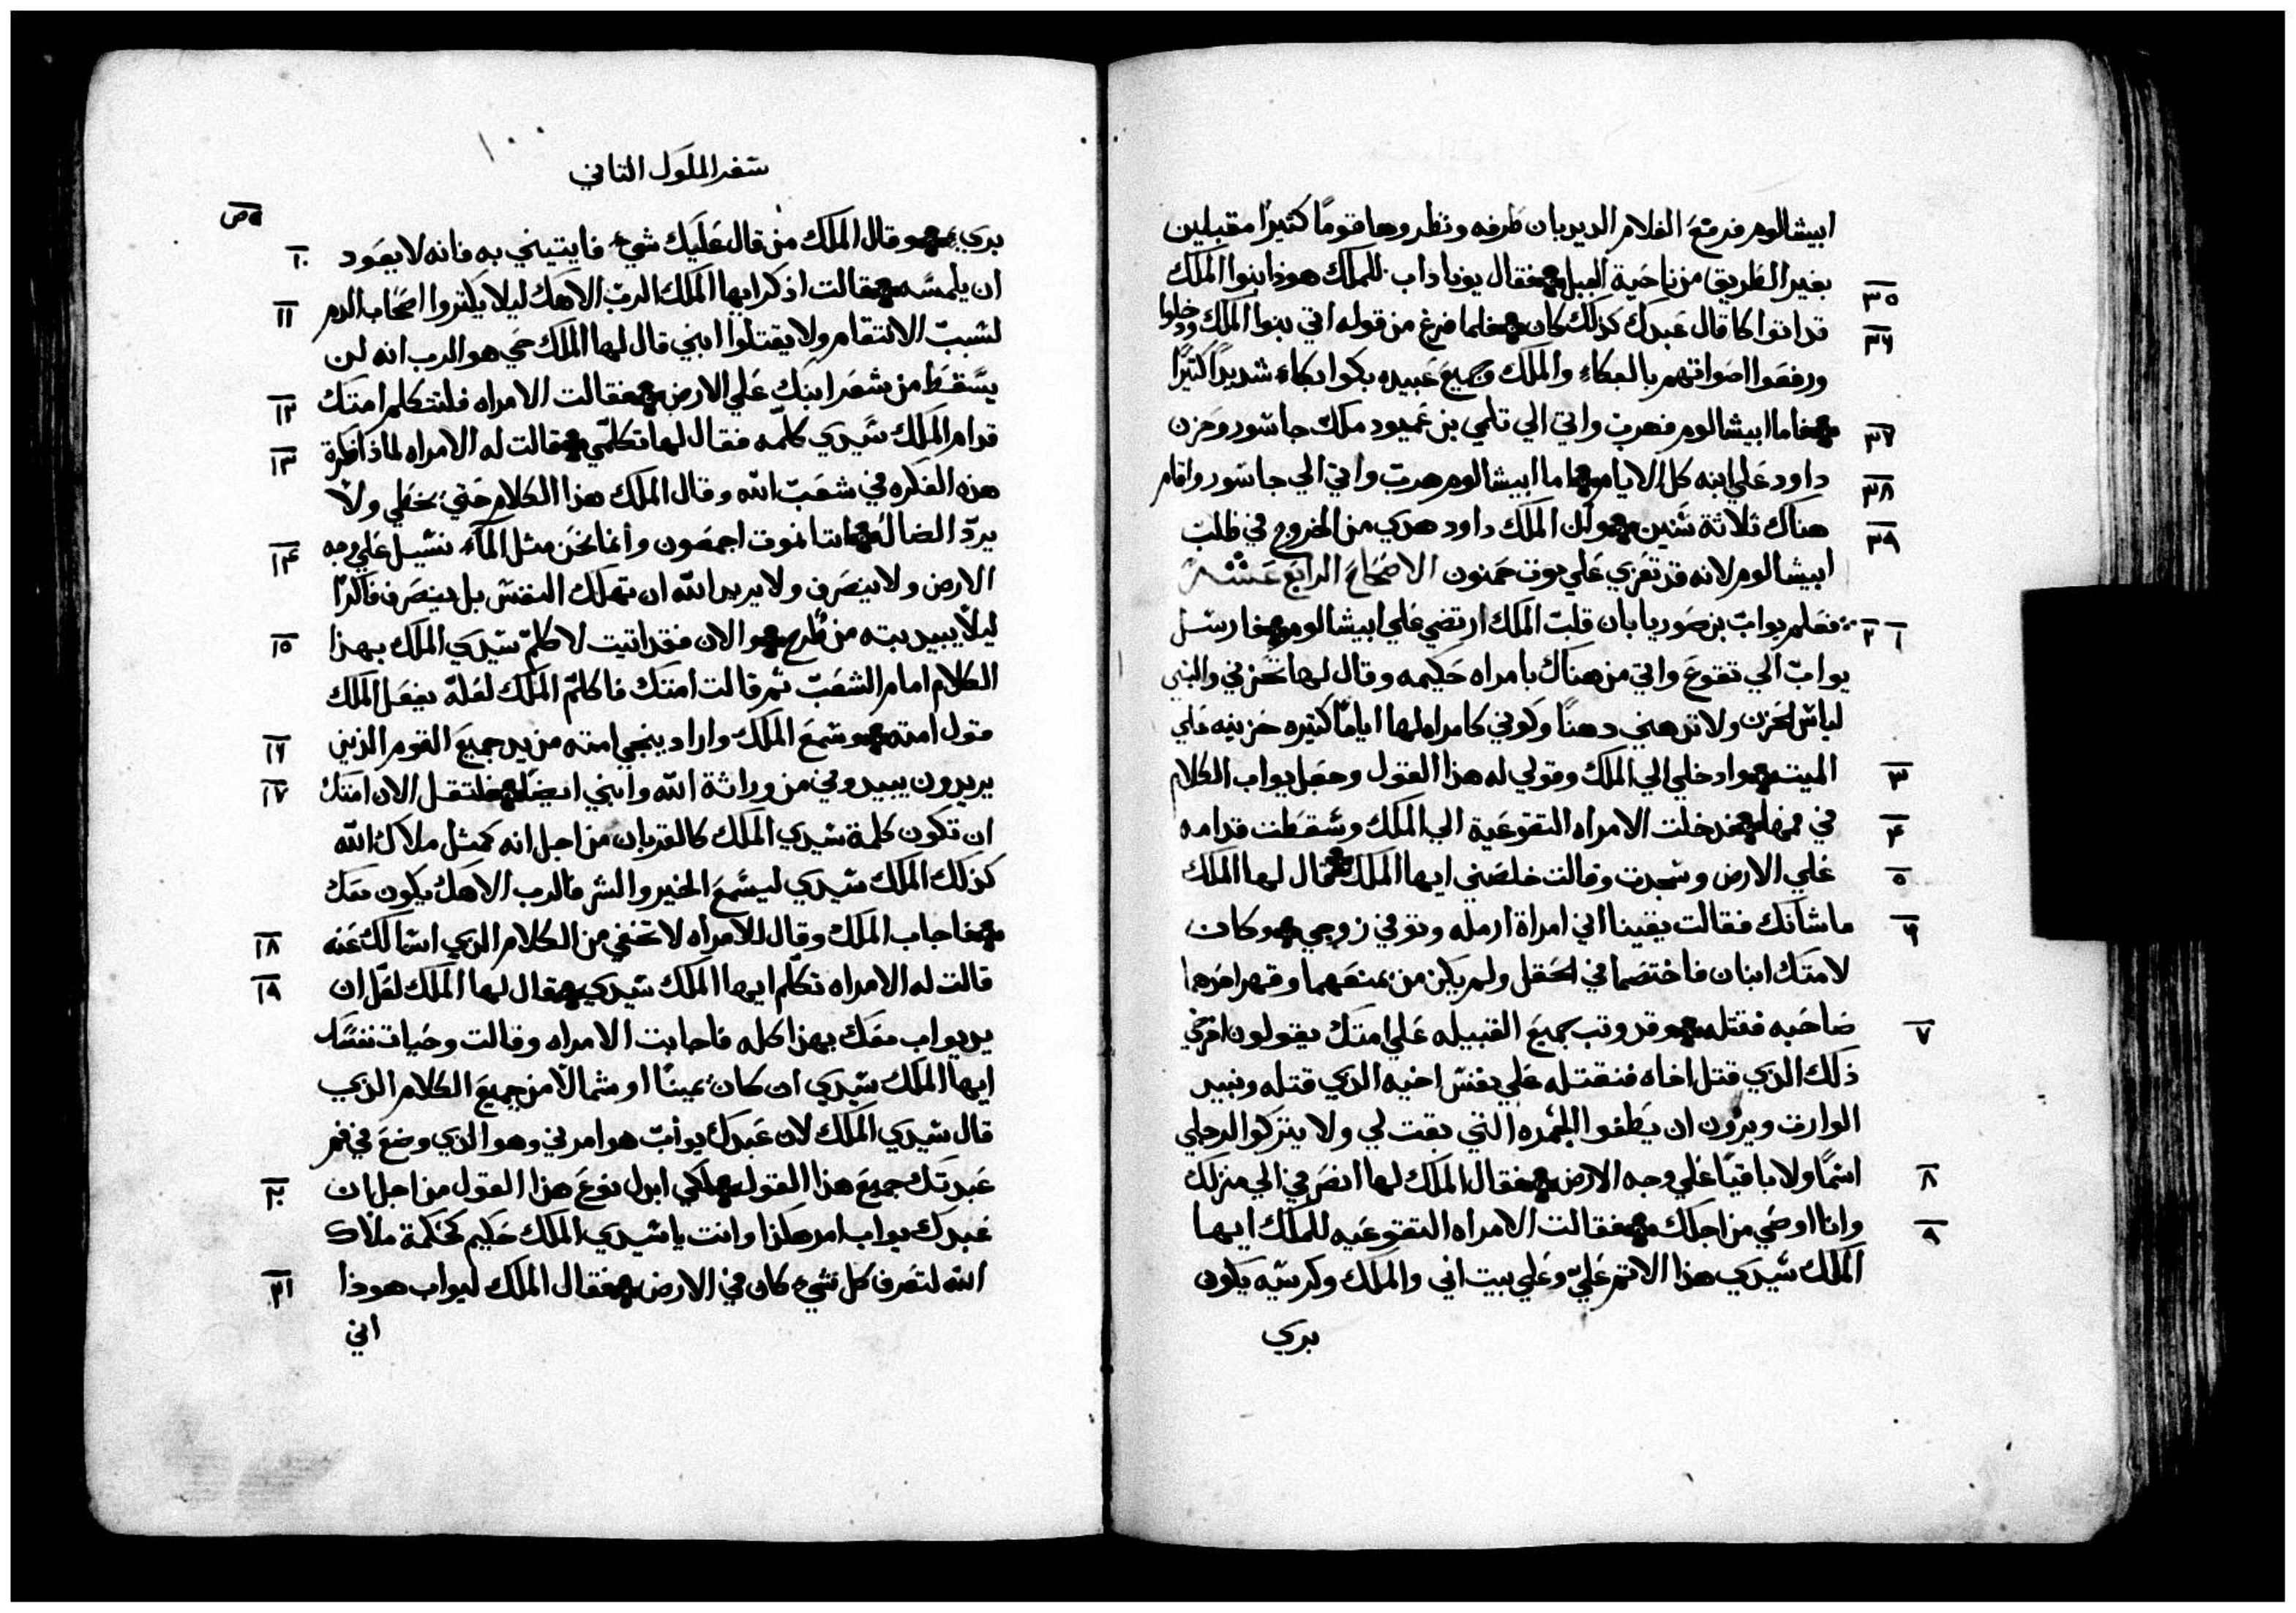 ابيشالوم فرفع الغلام الديدبان طرفه ونظر وها قومًا كثيرًا مقبلين
بغير الطريق من ناحية الجبل فقال يوناداب للملك هوذا بنوا الملك
٣٥
قد اتوا كما قال عبدك كذلك كان فلما فرغ من قوله اتي بنوا الملك ودخلوا
٣٦
ورفعوا اصواتهم بالبكاء والملك وجميع عبيده بكوا بكاء شديدًا كثيرًا
فاما ابيشالوم فهرب واتي الي تلمي بن عميود ملك جاشور وحزن
٣٧
داود علي ابنه كل الايام اما ابيشالوم هرب واتي الي جاشور واقام
٣٨
هناك ثلاثة سنين ولكن الملك داود هدي من الخروج في طلب
٣٩
ابيشالوم لانه قد تعزي علي موت حمنون الاصحاح الرابع عشر
فعلم يواب بن صوريا بان قلب الملك ارتضي علي ابيشالوم فارسل
١ ٢
يواب الي تقوع واتي من هناك بامراه حكيمه وقال لها تحزني والبسي
لباس الحزن ولا تدهني دهنًا وكوني كامراه لها ايامًا كثيره حزينه علي
الميت وادخلي الي الملك وقولي له هذا القول وجعل يواب الكلام
٣
في فمها فدخلت الامراه التقوعية الي الملك وسقطت قدامه
٤
علي الارض وسجدت وقالت خلصني ايها الملك فقال لها الملك
٥
ما شانك فقالت يقينا اني امراة ارمله وتوفي زوجي وكان
٦
لامتك ابنان فاختصما في الحقل ولم يكن من يمنعهما وقهر احدهما
صاحبه فقتله وقد وثب جميع القبيله علي امتك يقولون اخرجي
٧
ذلك الذي قتل اخاه فنقتله علي نفس اخيه الذي قتله ونبيد
الوارث ويرون ان يطفوا الجمره التي بقت لي ولا يتركوا لرجلي
اسمًا ولا باقيًا علي وجه الارض فقال الملك لها انصرفي الي منزلك
٨
وانا اوصي من اجلك فقالت الامراه التقوعيه للملك ايها
٩
الملك سيدي هذا الاثم عليّ وعلي بيت ابي والملك وكرسيه يكون
بري
سفر الملوك الثاني
بري وقال الملك من قال عليك شيء فايتيني به فانه لا يعود
١٠
ان يلمسه فقالت اذكر ايها الملك الرب الاهك ليلا يكثروا اصحاب الدم
١١
لسبب الانتقام ولا يقتلوا ابني قال لها الملك حي هو الرب انه لن
يسقط من شعر ابنك علي الارض فقالت الامراه فلتتكلم امتك
١٢
قدام الملك سيدي كلمه فقال لها تكلمي فقالت له الامراه لماذا فكرة
١٣
هذه الفكره في شعب الله وقال الملك هذا الكلام حتي يخطي ولا
يردّ الضاله اننا نموت اجمعون وانما نحن مثل الماء نسيل علي وجه
١٤
الارض ولا ينصرف ولا يريد الله ان تهلك النفس بل ينصرف فاكرًا
ليلًا يبيد بته من طُرح والان فقد اتيت لاكلم سيدي الملك بهذا
١٥
الكلام امام الشعب ثم قالت امتك فاكلم الملك لعله يفعل الملك
قول امته وسمع الملك واراد ينجي امته من يد جميع القوم الذين
١٦
يريدون يبيدوني من وراثة الله وابني ايضًا فلتقل الان امتك
١٧
ان تكون كلمة سيدي الملك كالقربان من اجل انه كمثل ملاك الله
كذلك الملك سيدي ليسمع الخير والشر فالرب الاهك يكون معك
فاجاب الملك وقال للامراه لا تخفي من الكلام الذي اسالك عنه
١٨
قالت له الامراه تكلم ايها الملك سيدي فقال لها الملك لعل ان
١٩
يد يواب معك بهذا كله فاجابت الامراه وقالت وحيات نفسك
ايها الملك سيدي ان كان يمينًا او شمالًا من جميع الكلام الذي
قال سيدي الملك لان عبدك يواب هو امرني وهو الذي وضع في فم
عبدتك جميع هذا القول لكي ابدل نوع هذا القول من اجل ان
٢٠
عبدك يواب امر هكذا وانت يا سيدي الملك حكيم كحكمة ملاك
الله لتعرف كل شيء كان في الارض فقال الملك ليواب هوذا
٢١
اني